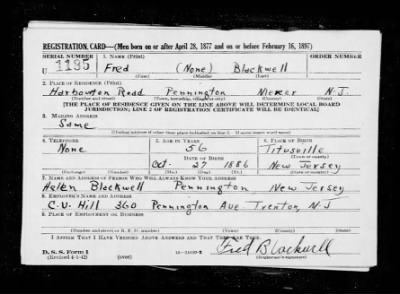 REGISTRATION CARD—(Men born on or after April 28, 1877 and on or before February 16, 1897)
SERIAL NUMBER 1. NAME (Print) ORDER NUMBER
U 1195 Fred (None) Blackwell
(First) (Middle) (Last)
2. PLACE OF RESIDENCE (Print)
Harbourton Road Pennington Mercer N.J.
(Number and street) (Town, township, village, or city) (County) (State)
[THE PLACE OF RESIDENCE GIVEN ON THE LINE ABOVE WILL DETERMINE LOCAL BOARD
JURISDICTION; LINE 2 OF REGISTRATION CERTIFICATE WILL BE IDENTICAL]
3. MAILING ADDRESS
Same
[Mailing address if other than place indicated on line 2. If same insert word same]
4. TELEPHONE 5. AGE IN YEARS 6. PLACE OF BIRTH
None 56 Titusville
DATE OF BIRTH (Town or county)
Oct. 27 1886 New Jersey
(Exchange) (Number) (Mo.) (Day) (Yr.) (State or country)
7. NAME AND ADDRESS OF PERSON WHO WILL ALWAYS KNOW YOUR ADDRESS
Helen Blackwell Pennington New Jersey
8. EMPLOYER'S NAME AND ADDRESS
C.V. Hill 360 Pennington Ave Trenton, N.J
9. PLACE OF EMPLOYMENT OR BUSINESS
(Number and street or R. F. D. number) (Town) (County) (State)
I AFFIRM THAT I HAVE VERIFIED ABOVE ANSWERS AND THAT THEY ARE TRUE.
D. S. S. Form 1
(Revised 4-1-42) Fred Blackwell
(Registrant's signature)